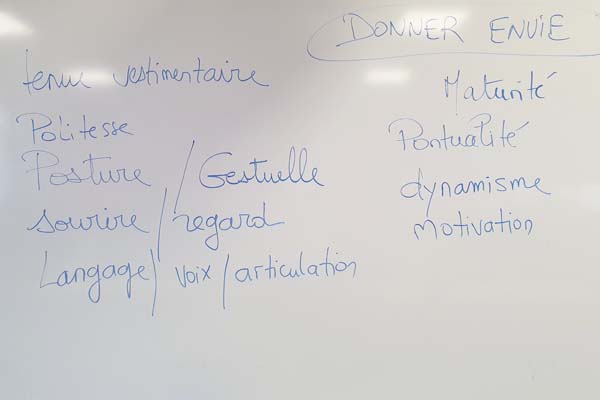 DONNER ENVIE
tenue vestimentaire
Politesse
Posture / Gestuelle
sourire / regard
Langage / voix / articulation
Maturité
Pontualité
dynamisme
Motivation